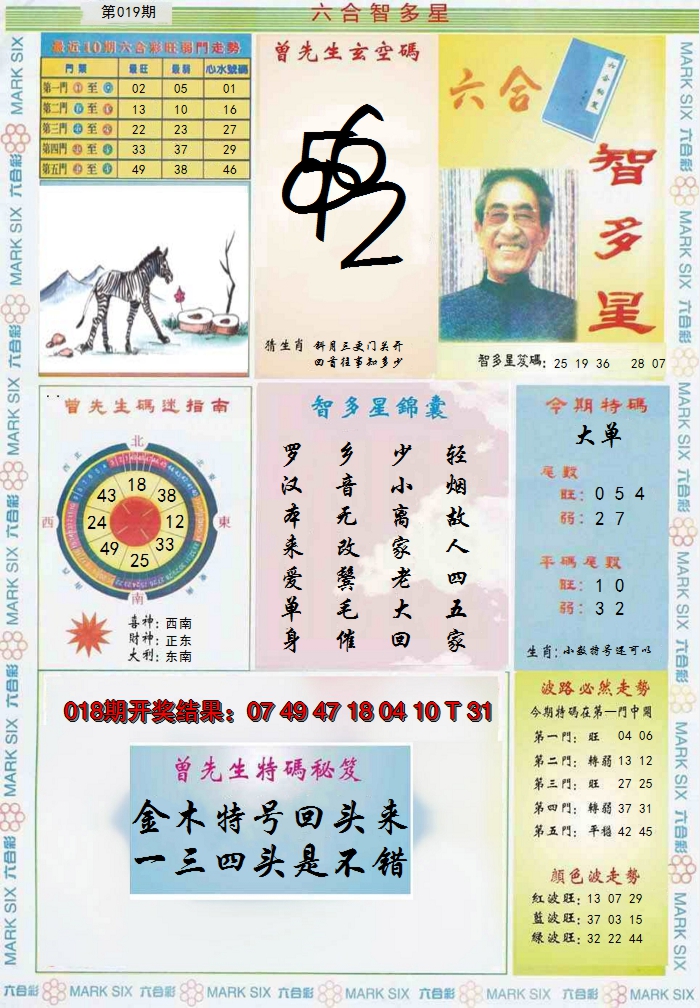 第019期
六合智多星
最近10期六合彩旺弱門走勢
門類 最旺 最弱 心水號碼
第一門 至 02 05 01
第二門 至 13 10 16
第三門 至 22 23 27
第四門 至 33 37 29
第五門 至 49 38 46
曾先生玄空碼
猜生肖 斜月三更门关开
回首往事知多少
六合
智多星
智多星笈碼: 25 19 36 28 07
曾先生碼迷指南
北
西
東
南
18
43 38
24 12
49 33
25
喜神: 西南
財神: 正东
大利: 东南
智多星錦囊
轻烟故人四五家
少小离家老大回
乡音无改鬓毛催
罗汉本来爱单身
今期特碼
大单
尾數
旺: 0 5 4
弱: 2 7
平碼尾數
旺: 1 0
弱: 3 2
生肖: 小数特号还可以
018期开奖结果: 07 49 47 18 04 10 T 31
曾先生特碼秘笈
金木特号回头来
一三四头是不错
波路必然走勢
今期特碼在第一門中開
第一門: 旺 04 06
第二門: 轉弱 13 12
第三門: 旺 27 25
第四門: 轉弱 37 31
第五門: 平穩 42 45
顏色波走勢
紅波旺: 13 07 29
藍波旺: 37 03 15
綠波旺: 32 22 44
MARK SIX 六合彩